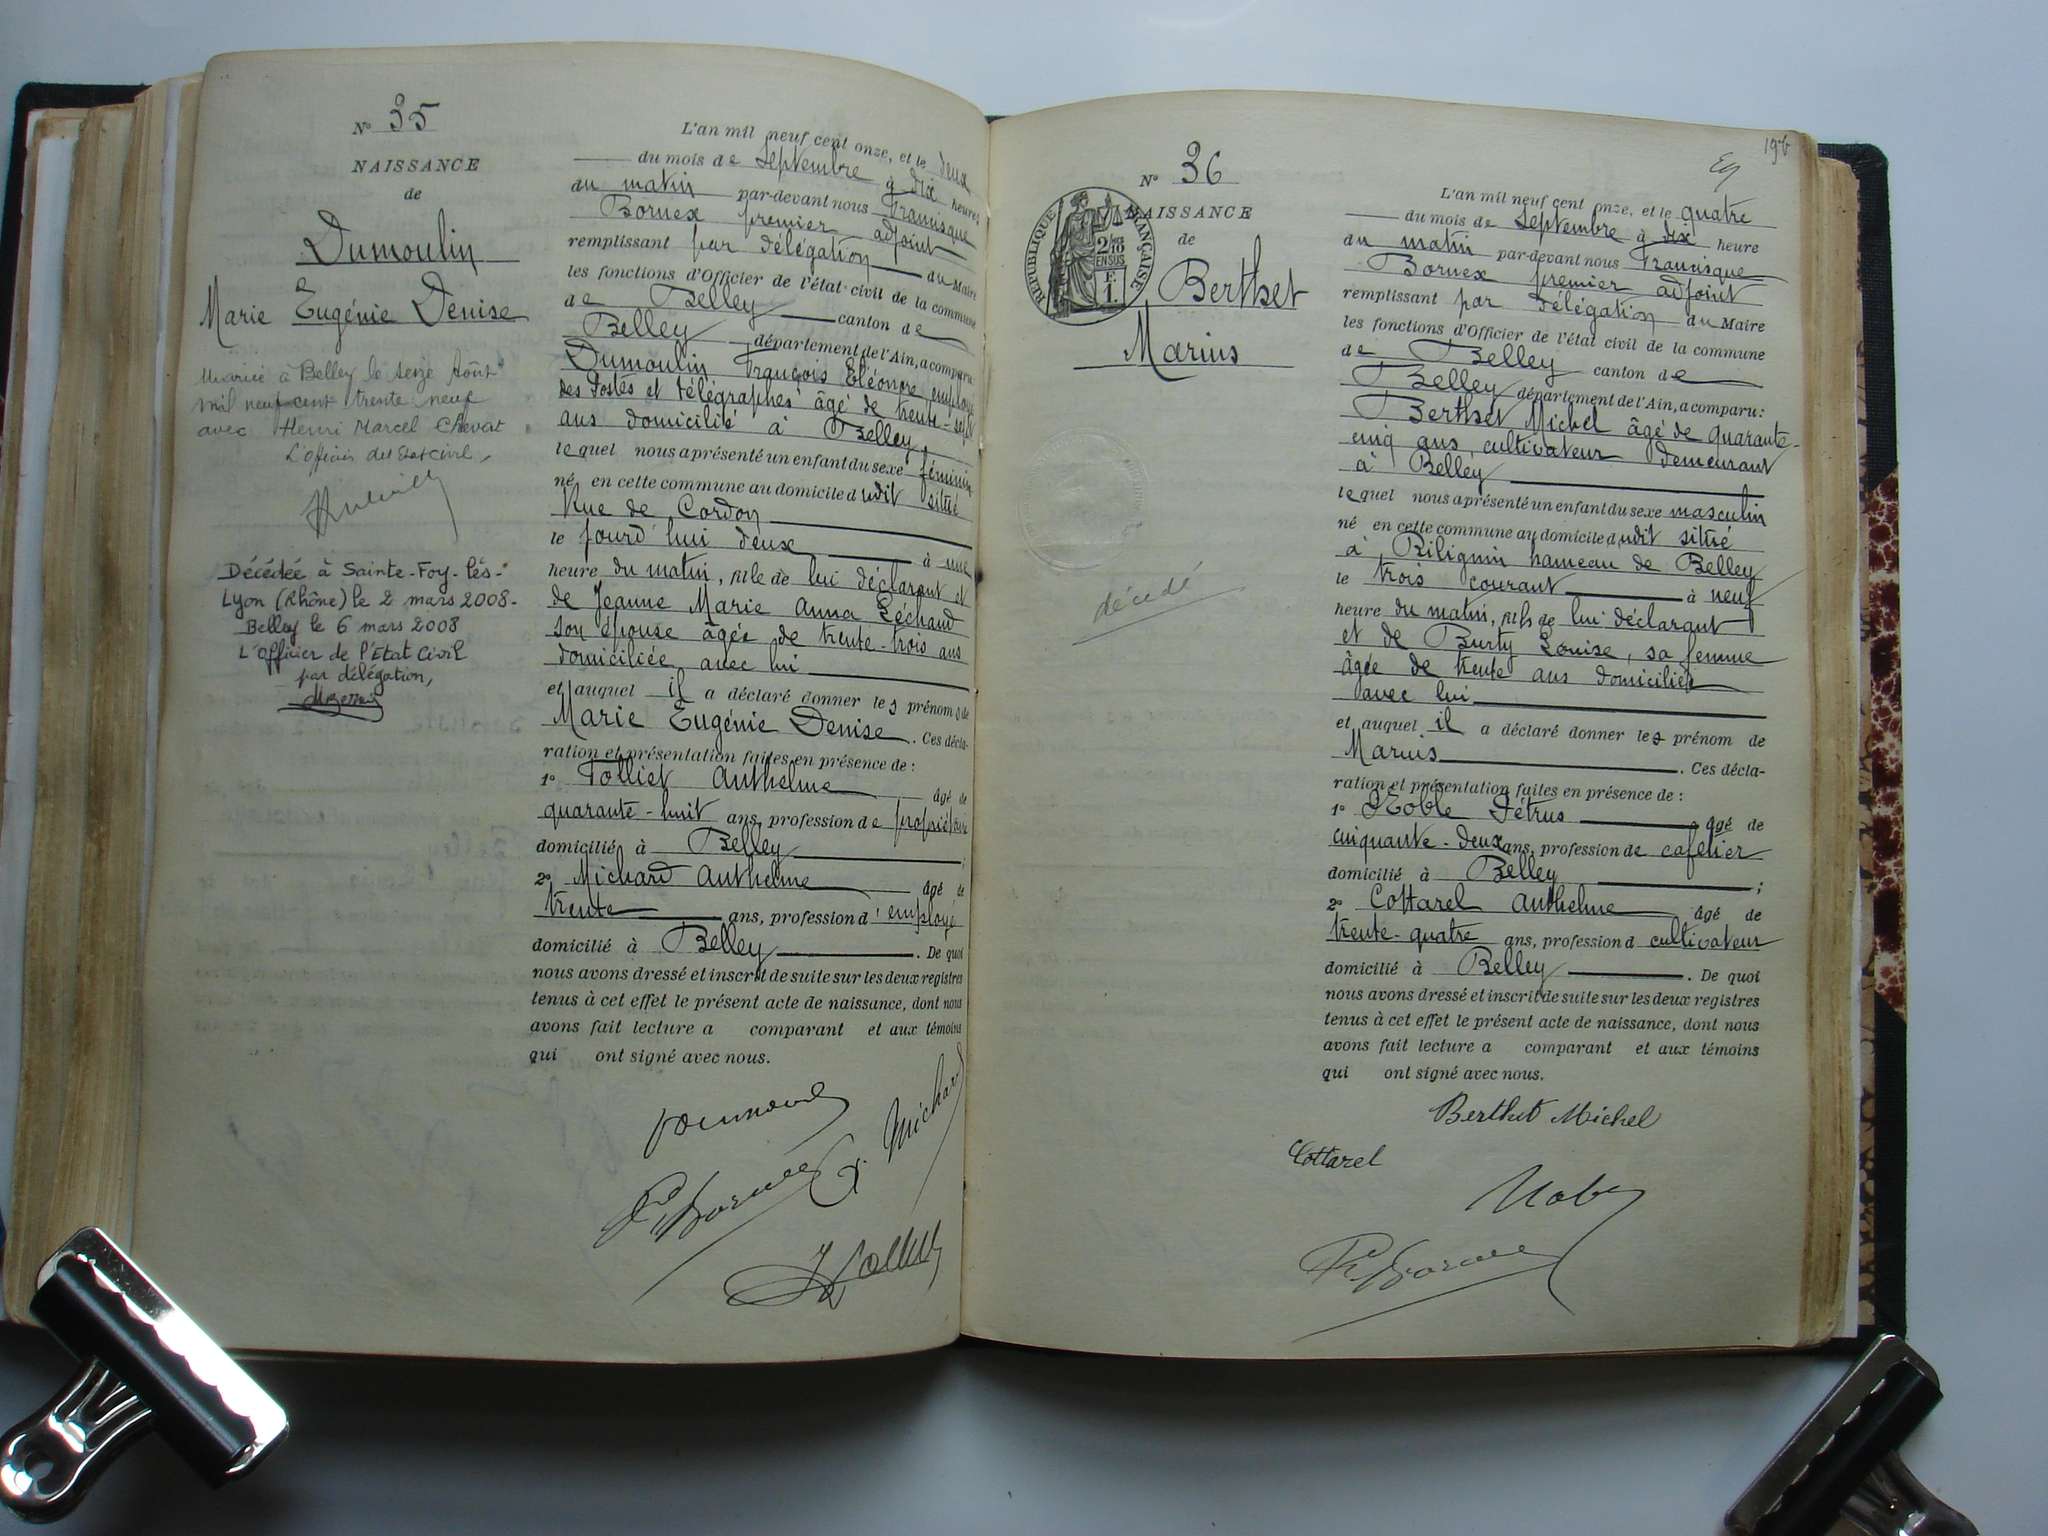 N° 35
NAISSANCE
de
Dumoulin
Marie Eugénie Denise
Mariée à Belley le seize Août
mil neuf cent trente neuf
avec Henri Marcel Chevat
L'officier de l'état civil,
Décédée à Sainte-Foy-lès-
Lyon (Rhône) le 2 mars 2008.
Belley le 6 mars 2008
L'Officier de l'Etat Civil
par délégation,
L'an mil neuf cent onze, et le deux
du mois de Septembre à dix heures
du matin par-devant nous Francisque
Bornex premier adjoint
remplissant par délégation du Maire
les fonctions d'Officier de l'état-civil de la commune
de Belley canton de
Belley, département de l'Ain, a comparu:
Dumoulin François Eléonore, employé
des Postes et Télégraphes âgé de trente-sept
ans domicilié à Belley
lequel nous a présenté un enfant du sexe féminin
né en cette commune au domicile dudit situé
Rue de Cordon
le jourd'hui deux à une
heure du matin, fille de lui déclarant et
de Jeanne Marie Anna Léchaud
son épouse âgée de trente-trois ans
domiciliée avec lui
et auquel il a déclaré donner les prénoms de
Marie Eugénie Denise. Ces décla-
ration et présentation faites en présence de :
1° Tolliet Anthelme âgé de
quarante-huit ans, profession de propriétaire
domicilié à Belley ;
2° Michard Anthelme âgé de
trente ans, profession d'employé
domicilié à Belley. De quoi
nous avons dressé et inscrit de suite sur les deux registres
tenus à cet effet le présent acte de naissance, dont nous
avons fait lecture a comparant et aux témoins
qui ont signé avec nous.
Dumoulin
Michard
Fs Bornex
Tolliet
196
N° 36
NAISSANCE
de
RÉPUBLIQUE FRANÇAISE
2/10
EN SUS
F.
1.
Berthet
Marius
décédé
L'an mil neuf cent onze, et le quatre
du mois de Septembre à dix heure
du matin par-devant nous Francisque
Bornex premier adjoint
remplissant par délégation du Maire
les fonctions d'Officier de l'état civil de la commune
de Belley canton de
Belley département de l'Ain, a comparu:
Berthet Michel âgé de quarante-
cinq ans, cultivateur demeurant
à Belley
lequel nous a présenté un enfant du sexe masculin
né en cette commune au domicile dudit situé
à Billignin hameau de Belley
le trois courant à neuf
heure du matin, fils de lui déclarant
et de Burty Louise, sa femme
âgée de trente ans domiciliée
avec lui
et auquel il a déclaré donner les prénom de
Marius. Ces décla-
ration et présentation faites en présence de :
1° Noble Pétrus âgé de
cinquante-deux ans, profession de cafetier
domicilié à Belley ;
2° Cottarel Anthelme âgé de
trente-quatre ans, profession d cultivateur
domicilié à Belley. De quoi
nous avons dressé et inscrit de suite sur les deux registres
tenus à cet effet le présent acte de naissance, dont nous
avons fait lecture a comparant et aux témoins
qui ont signé avec nous.
Berthet Michel
Cottarel
Noble
Fs Bornex